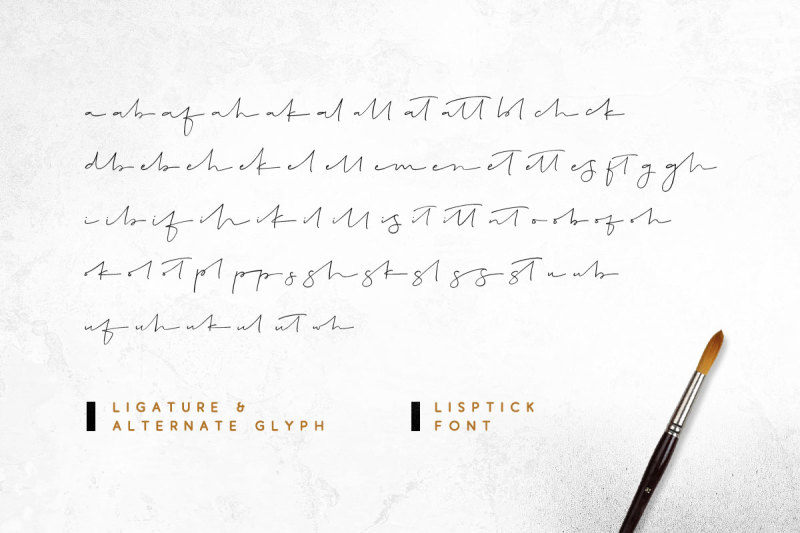 a ab af ah ak al all at att bl ch ck
db eb eh ek el ell em en et ett es ft g gh
i ib if ih ik il ill is it itt nt o ob of oh
ok ol ot pl pp s sh sk sl ss st u ub
uf uh uk ul ut wh
LIGATURE &
ALTERNATE GLYPH
LISPTICK
FONT